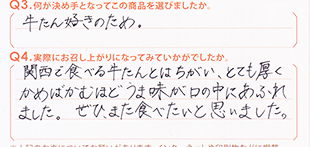 Q3.何が決め手となってこの商品を選びましたか。
牛たん好きのため。
Q4.実際にお召し上がりになってみていかがでしたか。
関西で食べる牛たんとはちがい、とても厚く
かめばかむほどうま味が口の中にあふれ
ました。ぜひまた食べたいと思いました。